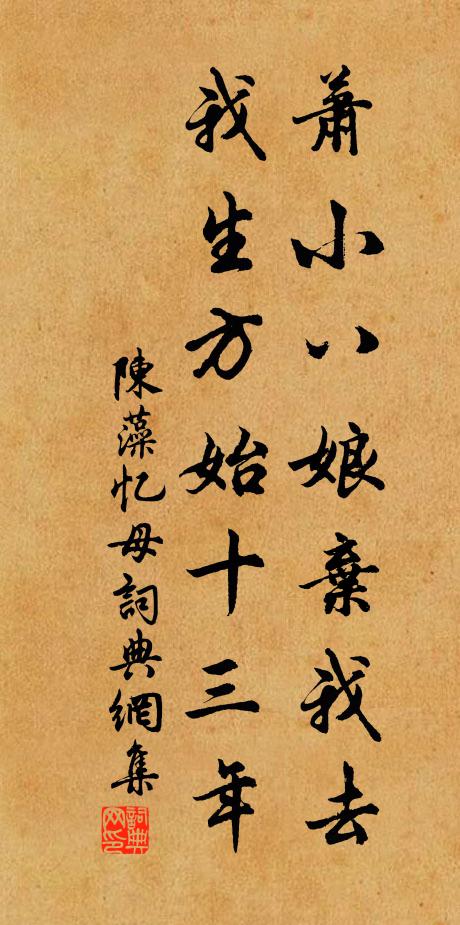 蕭小八娘棄我去
我生方始十三年
陳藻忆母詞典網集
詞典网印